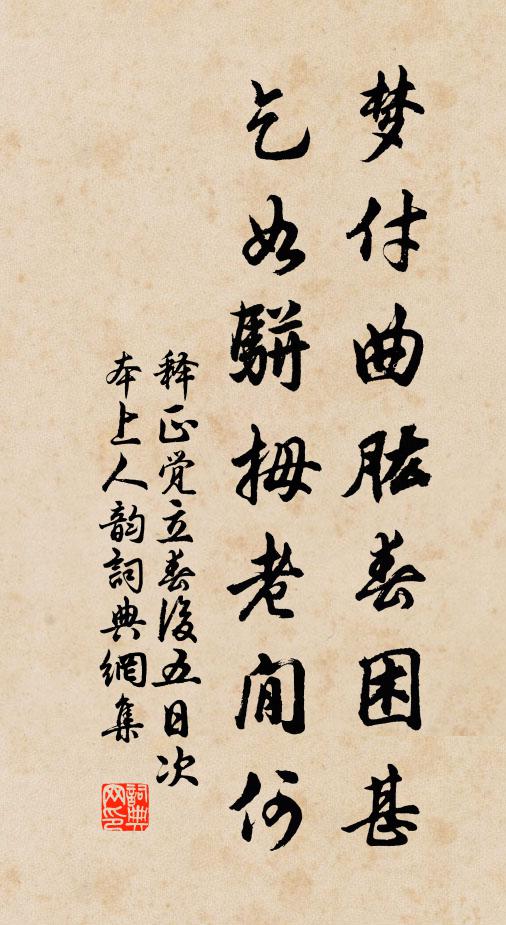 梦付曲肱春困甚
乞如駢拇老闲何
释正觉立春後五日次
本上人韵詞典網集
詞典网印